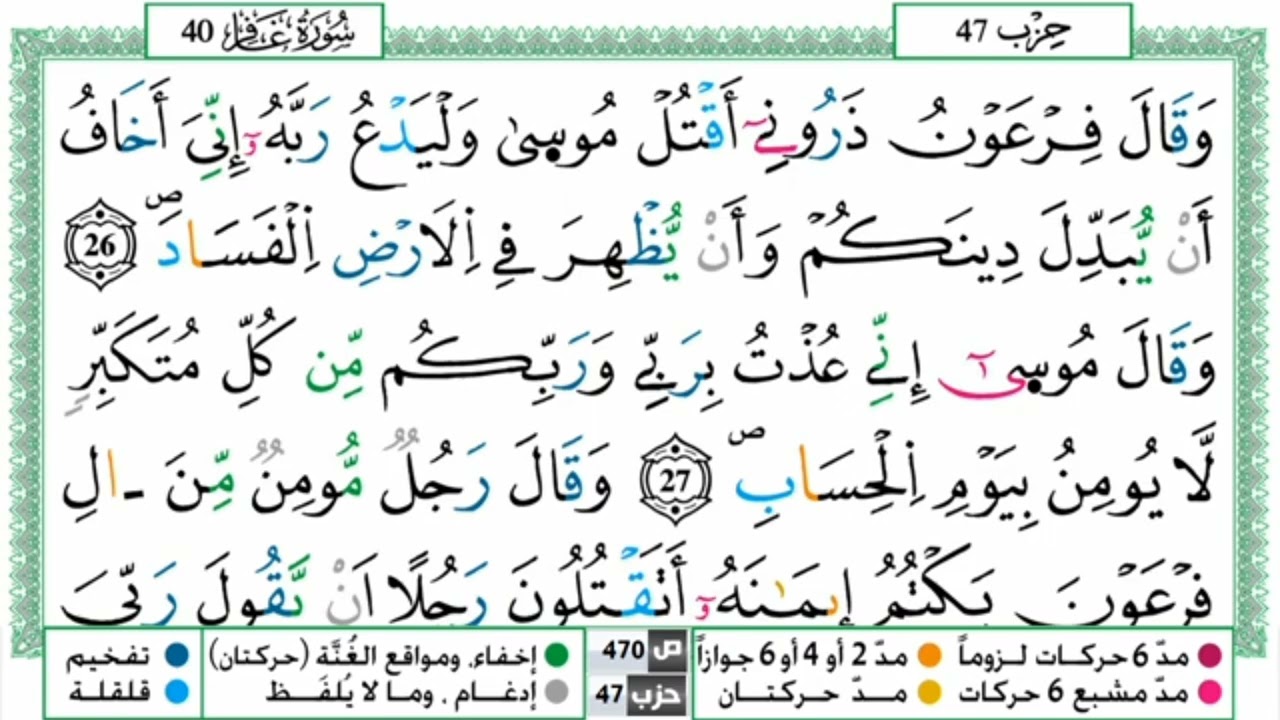 حِزْب 47
سُورَةُ غَافِر 40
وَقَالَ فِرْعَوْنُ ذَرُونِےٓ أَقْتُلْ مُوسۭيٰ وَلْيَدْعُ رَبَّهُۥٓ إِنِّيَ أَخَافُ
أَنْ يُّبَدِّلَ دِينَكُمْ وَأَنْ يُّظْهِرَ فِے اِلَارْضِ اِلْفَسَادَۖ 26
وَقَالَ مُوسۭيٰٓ إِنِّے عُذْتُ بِرَبِّے وَرَبِّكُم مِّن كُلِّ مُتَكَبِّرٍ
لَّا يُومِنُ بِيَوْمِ اِلْحِسَابِۖ 27 وَقَالَ رَجُلٌ مُّومِنٌ مِّنَ ـ الِ
فِرْعَوْنَ يَكْتُمُ إِيمَٰنَهُۥٓ أَتَقْتُلُونَ رَجُلًا اَنْ يَّقُولَ رَبِّيَ
مدّ 6 حركات لـزوماً مدّ 2 أو 4 أو 6 جوازاً ص 470 إخفاء، ومواقع الغُنَّة (حركتان) تفخيم
مدّ مشبع 6 حركات مـدّ حركتـان حزب 47 إدغام ، وما لا يُلفَـظ قلقلة